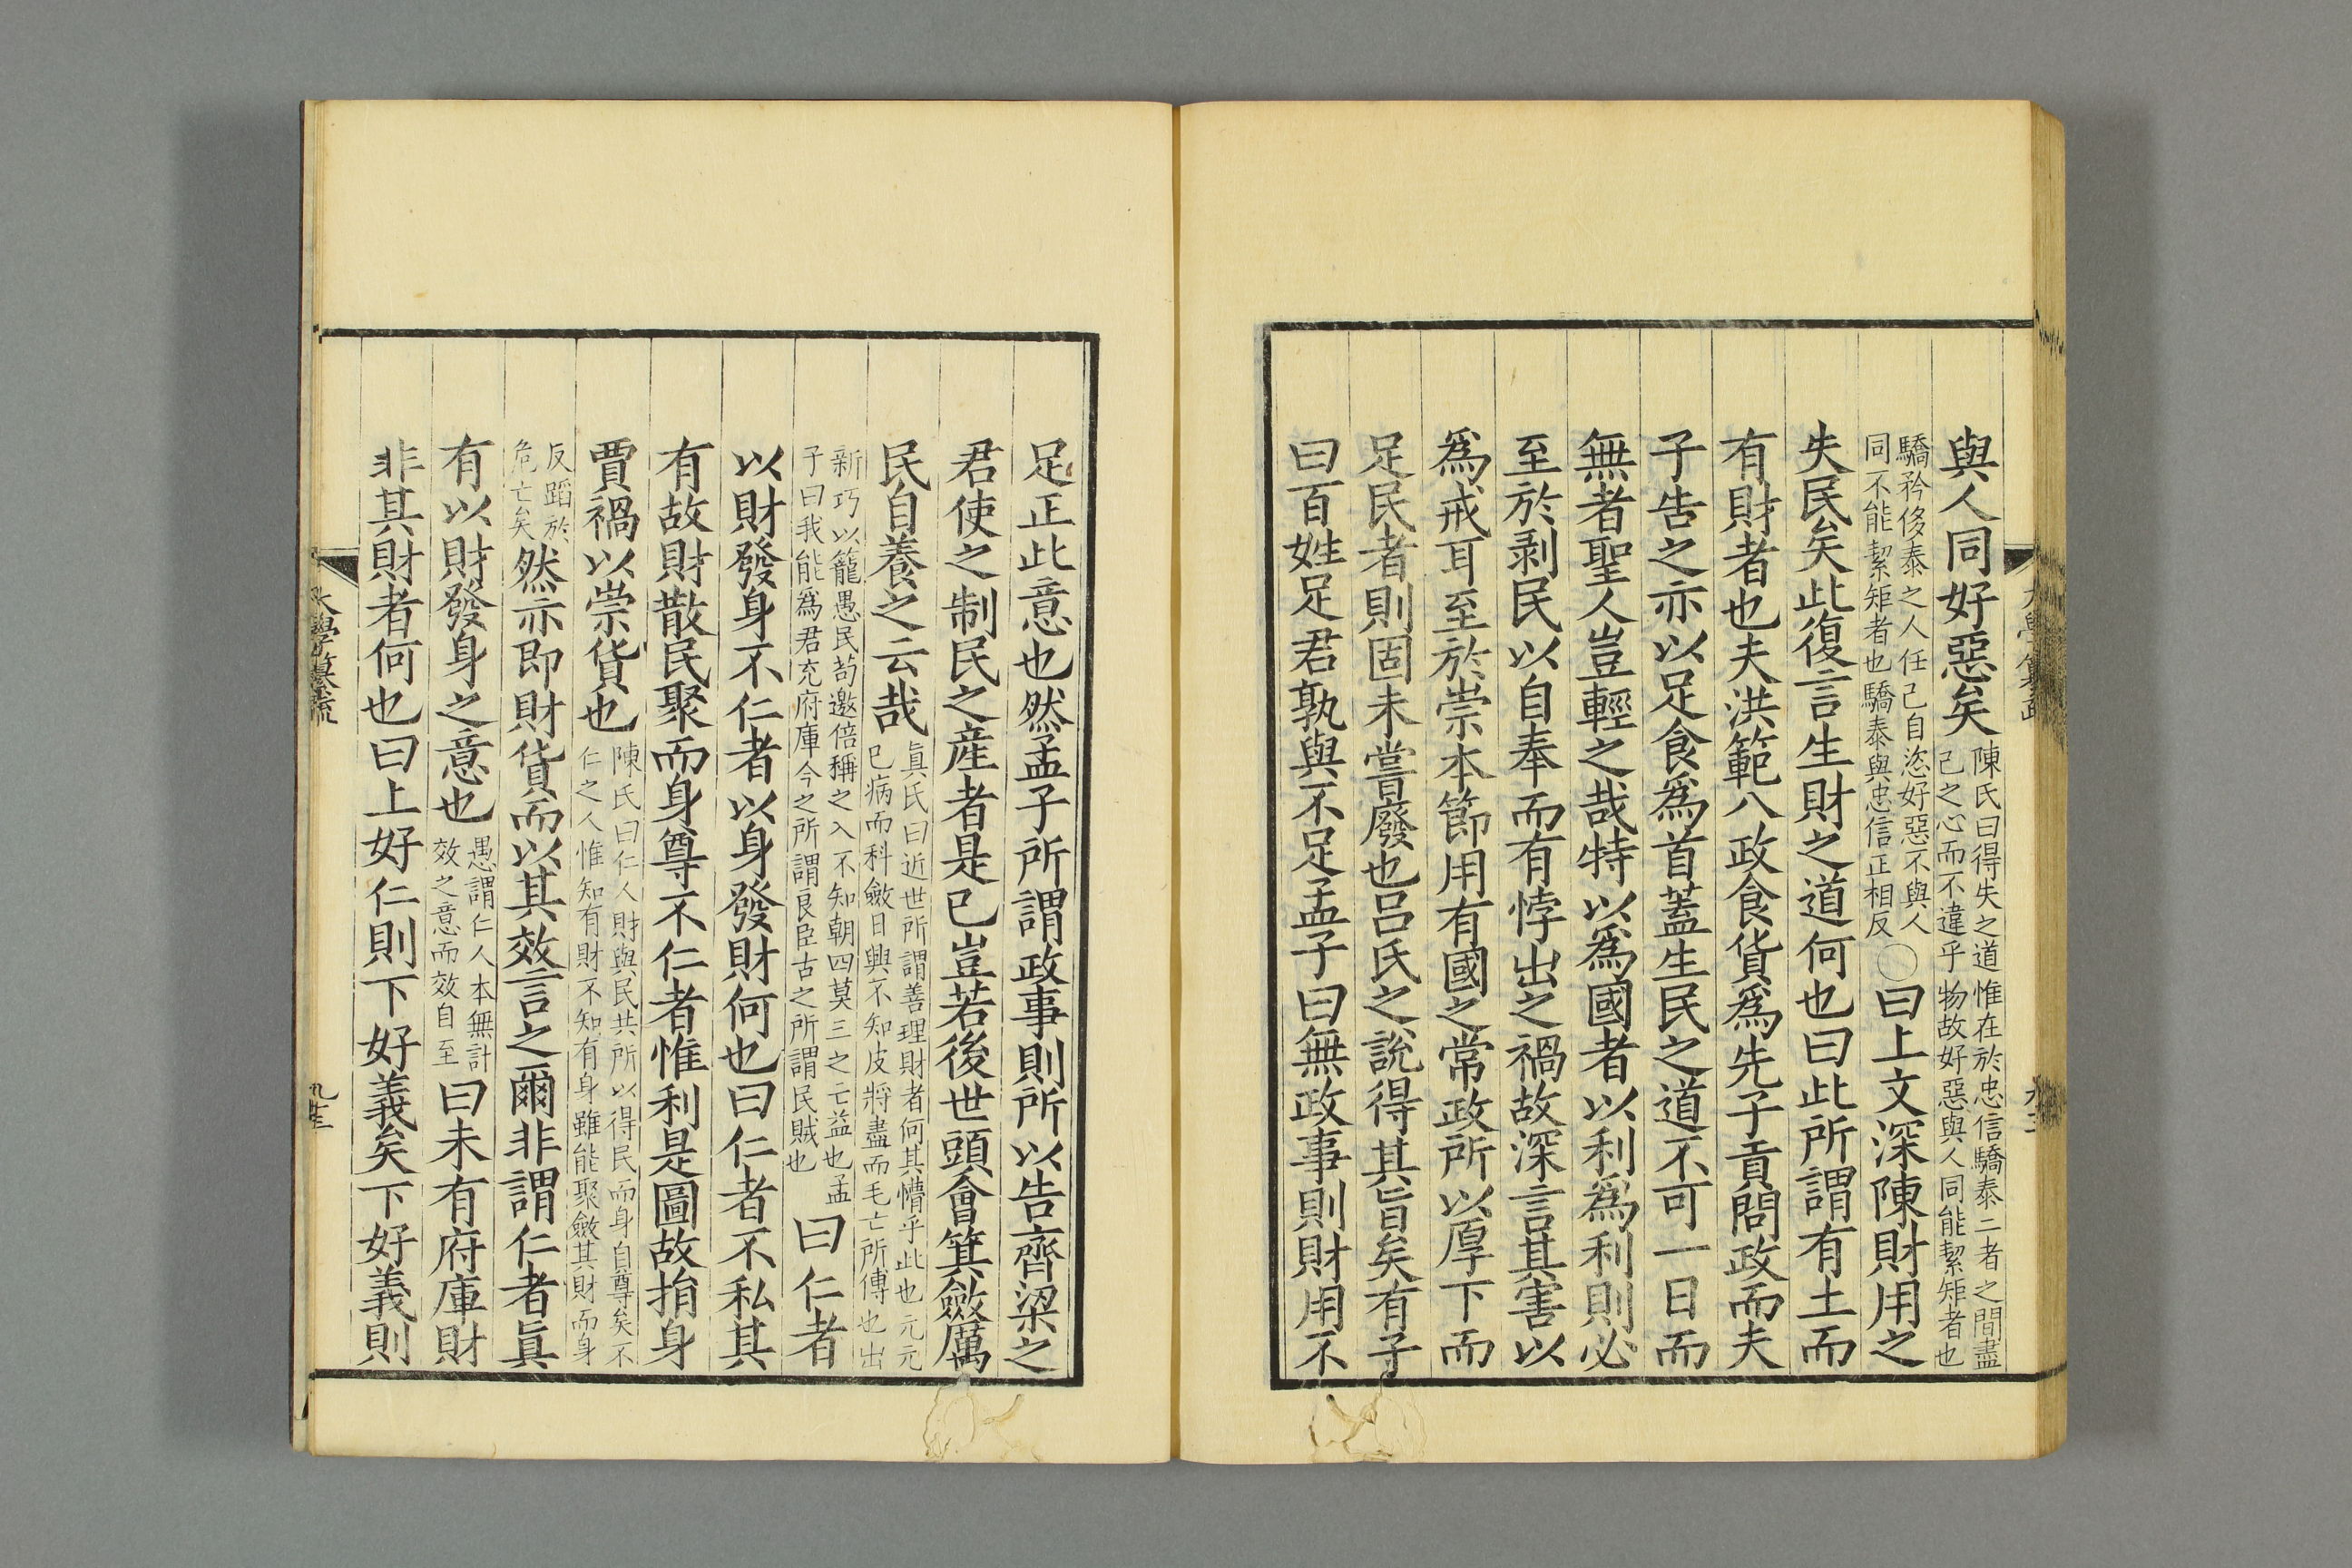 與人同好惡矣陳氏曰得失之道惟在於忠信驕泰二者之間盡己之心而不違乎物故好惡與人同能絜矩者也
驕矜侈泰之人任己自恣好惡不與人同不能絜矩者也驕泰與忠信正相反〇曰上文深陳財用之
失民矣此復言生財之道何也曰此所謂有土而
有財者也夫洪範八政食貨爲先子貢問政而夫
子告之亦以足食爲首蓋生民之道不可一日而
無者聖人豈輕之哉特以爲國者以利爲利則必
至於剥民以自奉而有悖出之禍故深言其害以
爲戒耳至於崇本節用有國之常政所以厚下而
足民者則固未嘗廢也呂氏之說得其旨矣有子
曰百姓足君孰與不足孟子曰無政事則財用不
足正此意也然孟子所謂政事則所以告齊梁之
君使之制民之産者是已豈若後世頭會箕斂厲
民自養之云哉眞氏曰近世所謂善理財者何其懵乎此也元元已病而科斂日興不知皮將盡而毛亡所傅也出
新巧以籠愚民苟邀倍稱之入不知朝四莫三之亡益也孟子曰我能爲君充府庫今之所謂良臣古之所謂民賊也曰仁者
以財發身不仁者以身發財何也曰仁者不私其
有故財散民聚而身尊不仁者惟利是圖故捐身
賈禍以崇貨也陳氏曰仁人財與民共所以得民而身自尊矣不仁之人惟知有財不知有身雖能聚斂其財而身
反蹈於危亡矣然亦即財貨而以其效言之爾非謂仁者眞
有以財發身之意也愚謂仁人本無計效之意而效自至曰未有府庫財
非其財者何也曰上好仁則下好義矣下好義則
大學纂疏
九十三